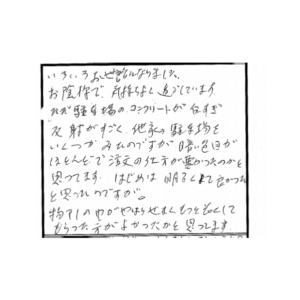 いろいろお世話になりました。
お陰様で、気持ちよく過ごしています
ただ駐車場のコンクリートが白すぎ
反射がすごく、他家の駐車場を
いくつかみたのですが暗い色目が
ほとんどで注文の仕方が悪かったのかと
思ってます。はじめは明るくて良かった
と思ったのですが。
物干しの巾がやはりせまくもっと長くして
もらった方がよかったかと思ってます